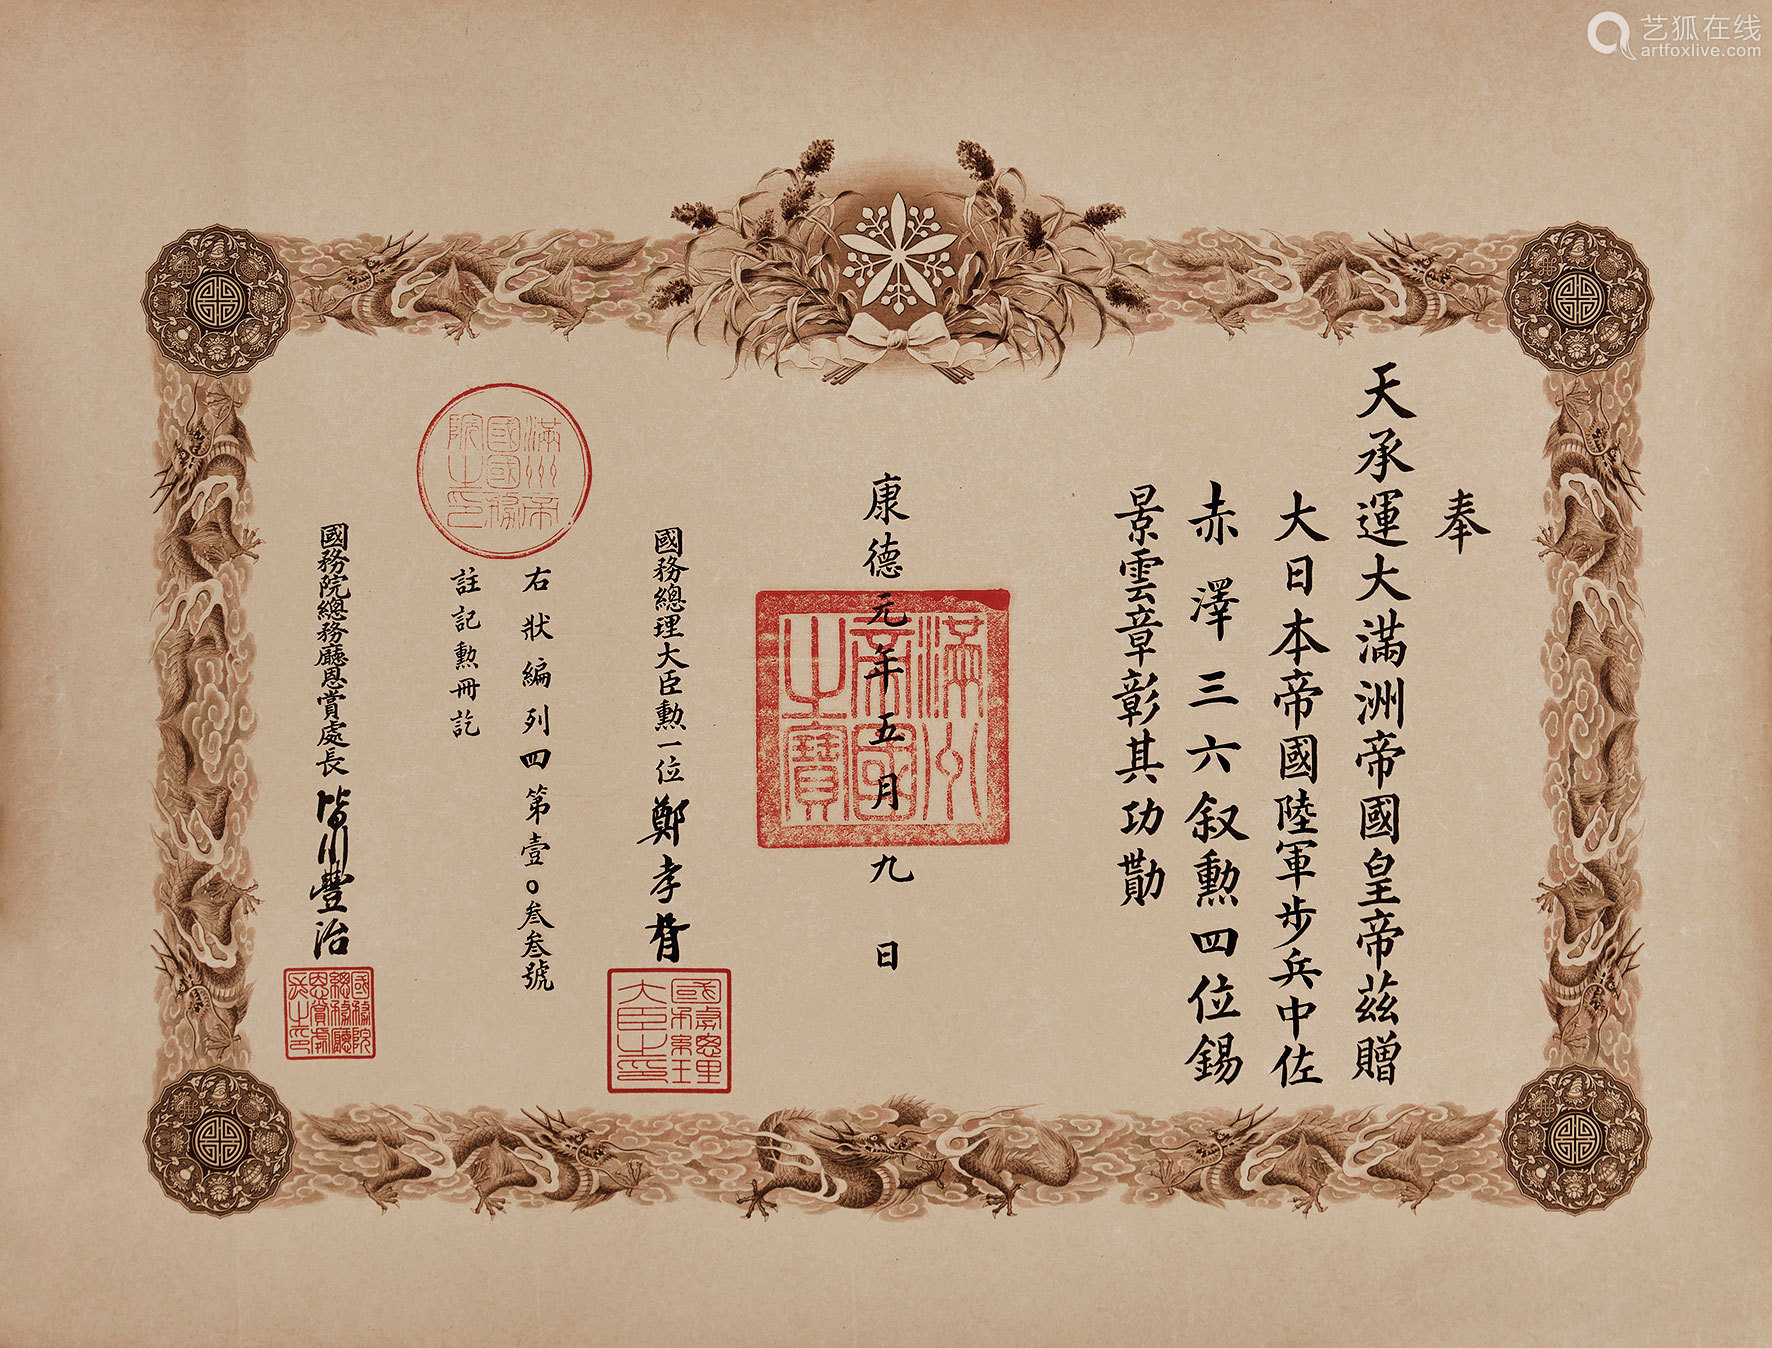 奉
天承運大滿洲帝國皇帝茲贈
大日本帝國陸軍步兵中佐
赤澤三六叙勲四位錫
景雲章彰其功勛
康德元年五月九日
滿州帝國之寶
國務總理大臣勲一位鄭孝胥
國務總理大臣之印
右狀編列四第壹〇叁叁號
註記勲冊訖
滿州帝國國務院之印
國務院總務廳恩賞處長皆川豐治
國務院總務廳恩賞處長之印
艺狐在线
artfoxlive.com